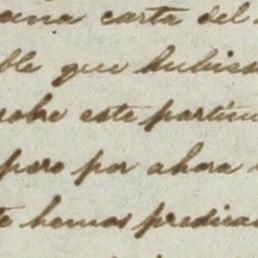 una carta del
ble que hubies
sobre este particu
pero por ahora
te hemos predica